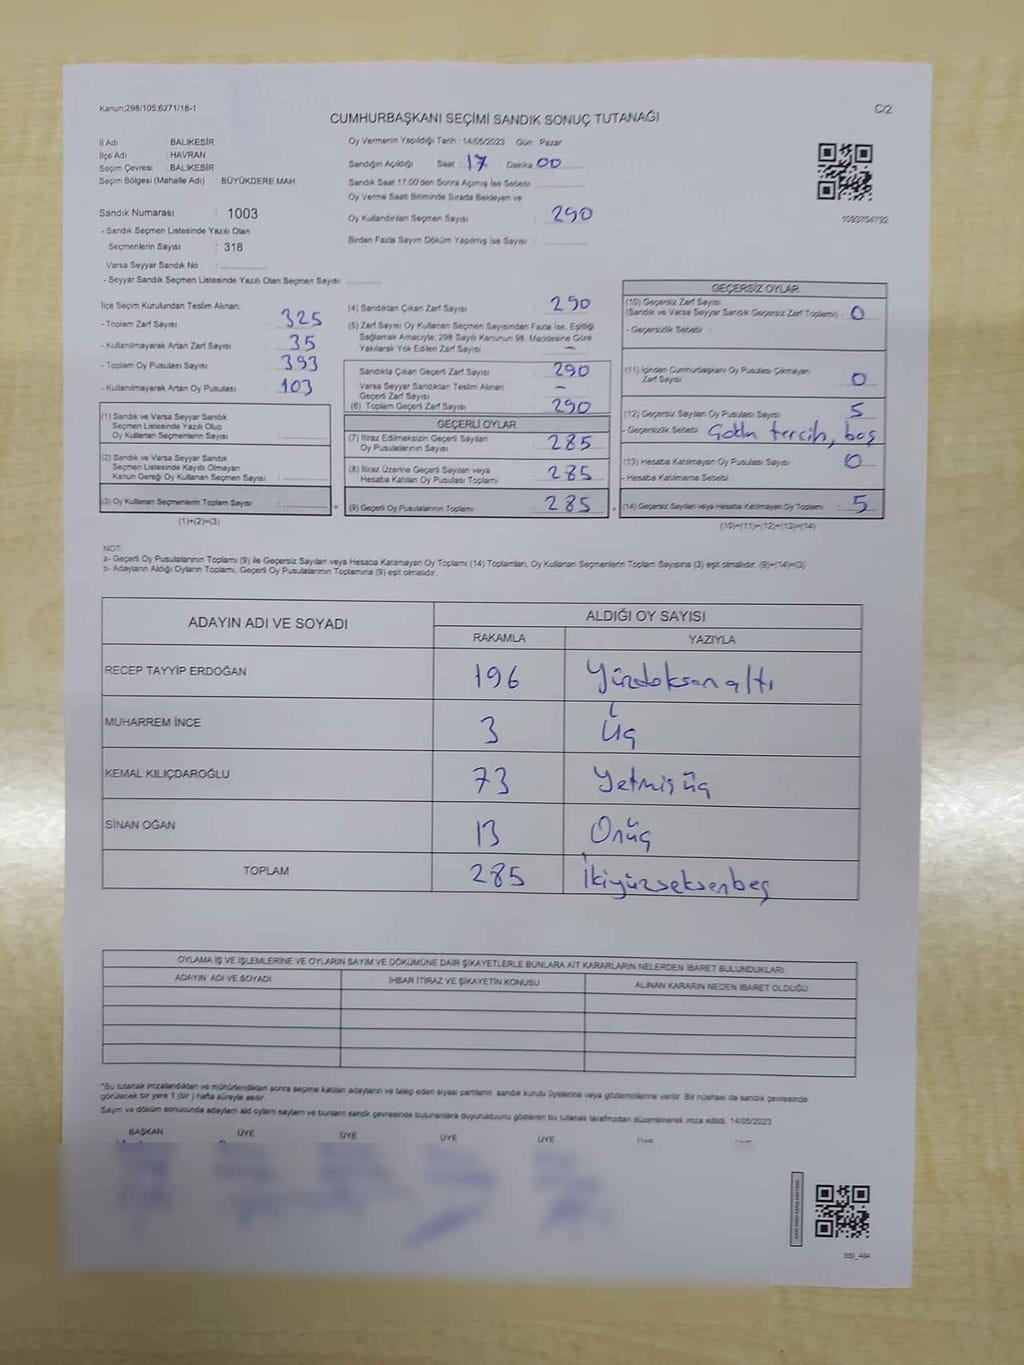 Kanun;298/105;6271/18-1
C/2
CUMHURBAŞKANI SEÇİMİ SANDIK SONUÇ TUTANAĞI
İl Adı : BALIKESİR
İlçe Adı : HAVRAN
Seçim Çevresi : BALIKESİR
Seçim Bölgesi (Mahalle Adı) : BÜYÜKDERE MAH.
Sandık Numarası : 1003
- Sandık Seçmen Listesinde Yazılı Olan
Seçmenlerin Sayısı : 318
Varsa Seyyar Sandık No :
- Seyyar Sandık Seçmen Listesinde Yazılı Olan Seçmen Sayısı :
Oy Vermenin Yapıldığı Tarih : 14/05/2023 Gün : Pazar
Sandığın Açıldığı Saat : 17 Dakika : 00
Sandık Saat 17.00'den Sonra Açılmış İse Sebebi :
Oy Verme Saati Bitiminde Sırada Bekleyen ve
Oy Kullandırılan Seçmen Sayısı : 290
Birden Fazla Sayım Döküm Yapılmış İse Sayısı :
İlçe Seçim Kurulundan Teslim Alınan;
- Toplam Zarf Sayısı : 325
- Kullanılmayarak Artan Zarf Sayısı : 35
- Toplam Oy Pusulası Sayısı : 393
- Kullanılmayarak Artan Oy Pusulası : 103
(1) Sandık ve Varsa Seyyar Sandık
Seçmen Listesinde Yazılı Olup
Oy Kullanan Seçmenlerin Sayısı :
(2) Sandık ve Varsa Seyyar Sandık
Seçmen Listesinde Kayıtlı Olmayan
Kanun Gereği Oy Kullanan Seçmen Sayısı :
(3) Oy Kullanan Seçmenlerin Toplam Sayısı :
(1)+(2)=(3)
(4) Sandıktan Çıkan Zarf Sayısı : 290
(5) Zarf Sayısı Oy Kullanan Seçmen Sayısından Fazla İse, Eşitliği
Sağlamak Amacıyla; 298 Sayılı Kanunun 98. Maddesine Göre
Yakılarak Yok Edilen Zarf Sayısı : -
Sandıkta Çıkan Geçerli Zarf Sayısı : 290
Varsa Seyyar Sandıktan Teslim Alınan
Geçerli Zarf Sayısı : -
(6) Toplam Geçerli Zarf Sayısı : 290
GEÇERLİ OYLAR
(7) İtiraz Edilmeksizin Geçerli Sayılan
Oy Pusulalarının Sayısı : 285
(8) İtiraz Üzerine Geçerli Sayılan veya
Hesaba Katılan Oy Pusulası Toplamı : 285
(9) Geçerli Oy Pusulalarının Toplamı : 285
GEÇERSİZ OYLAR
(10) Geçersiz Zarf Sayısı
(Sandık ve Varsa Seyyar Sandık Geçersiz Zarf Toplamı) : 0
- Geçersizlik Sebebi :
(11) İçinden Cumhurbaşkanı Oy Pusulası Çıkmayan
Zarf Sayısı : 0
(12) Geçersiz Sayılan Oy Pusulası Sayısı : 5
- Geçersizlik Sebebi : tercih, boş
(13) Hesaba Katılmayan Oy Pusulası Sayısı : 0
- Hesaba Katılmama Sebebi :
(14) Geçersiz Sayılan veya Hesaba Katılmayan Oy Toplamı : 5
(10)+(11)+(12)+(13)=(14)
NOT:
a- Geçerli Oy Pusulalarının Toplamı (9) ile Geçersiz Sayılan veya Hesaba Katılmayan Oy Toplamı (14) Toplamları, Oy Kullanan Seçmenlerin Toplam Sayısına (3) eşit olmalıdır. (9)+(14)=(3)
b- Adayların Aldığı Oyların Toplamı, Geçerli Oy Pusulalarının Toplamına (9) eşit olmalıdır.
ADAYIN ADI VE SOYADI
ALDIĞI OY SAYISI
RAKAMLA YAZIYLA
RECEP TAYYİP ERDOĞAN 196 Yüzdoksanaltı
MUHARREM İNCE 3 Üç
KEMAL KILIÇDAROĞLU 73 Yetmişüç
SİNAN OĞAN 13 Onüç
TOPLAM 285 İkiyüzseksenbeş
OYLAMA İŞ VE İŞLEMLERİNE VE OYLARIN SAYIM VE DÖKÜMÜNE DAİR ŞİKAYETLERLE BUNLARA AİT KARARLARIN NELERDEN İBARET BULUNDUKLARI
ADAYIN ADI VE SOYADI İHBAR İTİRAZ VE ŞİKAYETİN KONUSU ALINAN KARARIN NEDEN İBARET OLDUĞU
*Bu tutanak imzalandıktan ve mühürlendikten sonra seçime katılan adayların ve talep eden siyasi partilerin sandık kurulu üyelerine veya gözlemcilerine verilir. Bir nüshası da sandık çevresinde
görülecek bir yere 1 (bir) hafta süreyle asılır.
Sayım ve döküm sonucunda adayların aldığı oyların sayılarını ve bunların sandık çevresinde bulunanlara duyurulduğunu gösteren bu tutanak tarafımızdan düzenlenerek imza edildi. 14/05/2023
BAŞKAN ÜYE ÜYE ÜYE ÜYE ÜYE ÜYE